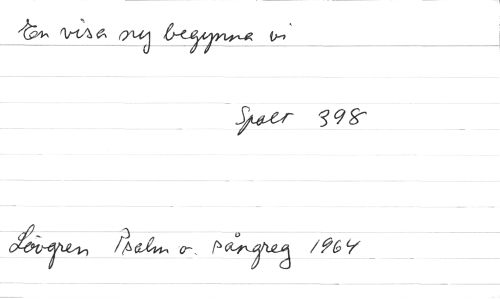 En visa ny begynna vi
Spalt 398
Lövgren Psalm o. sångreg 1964